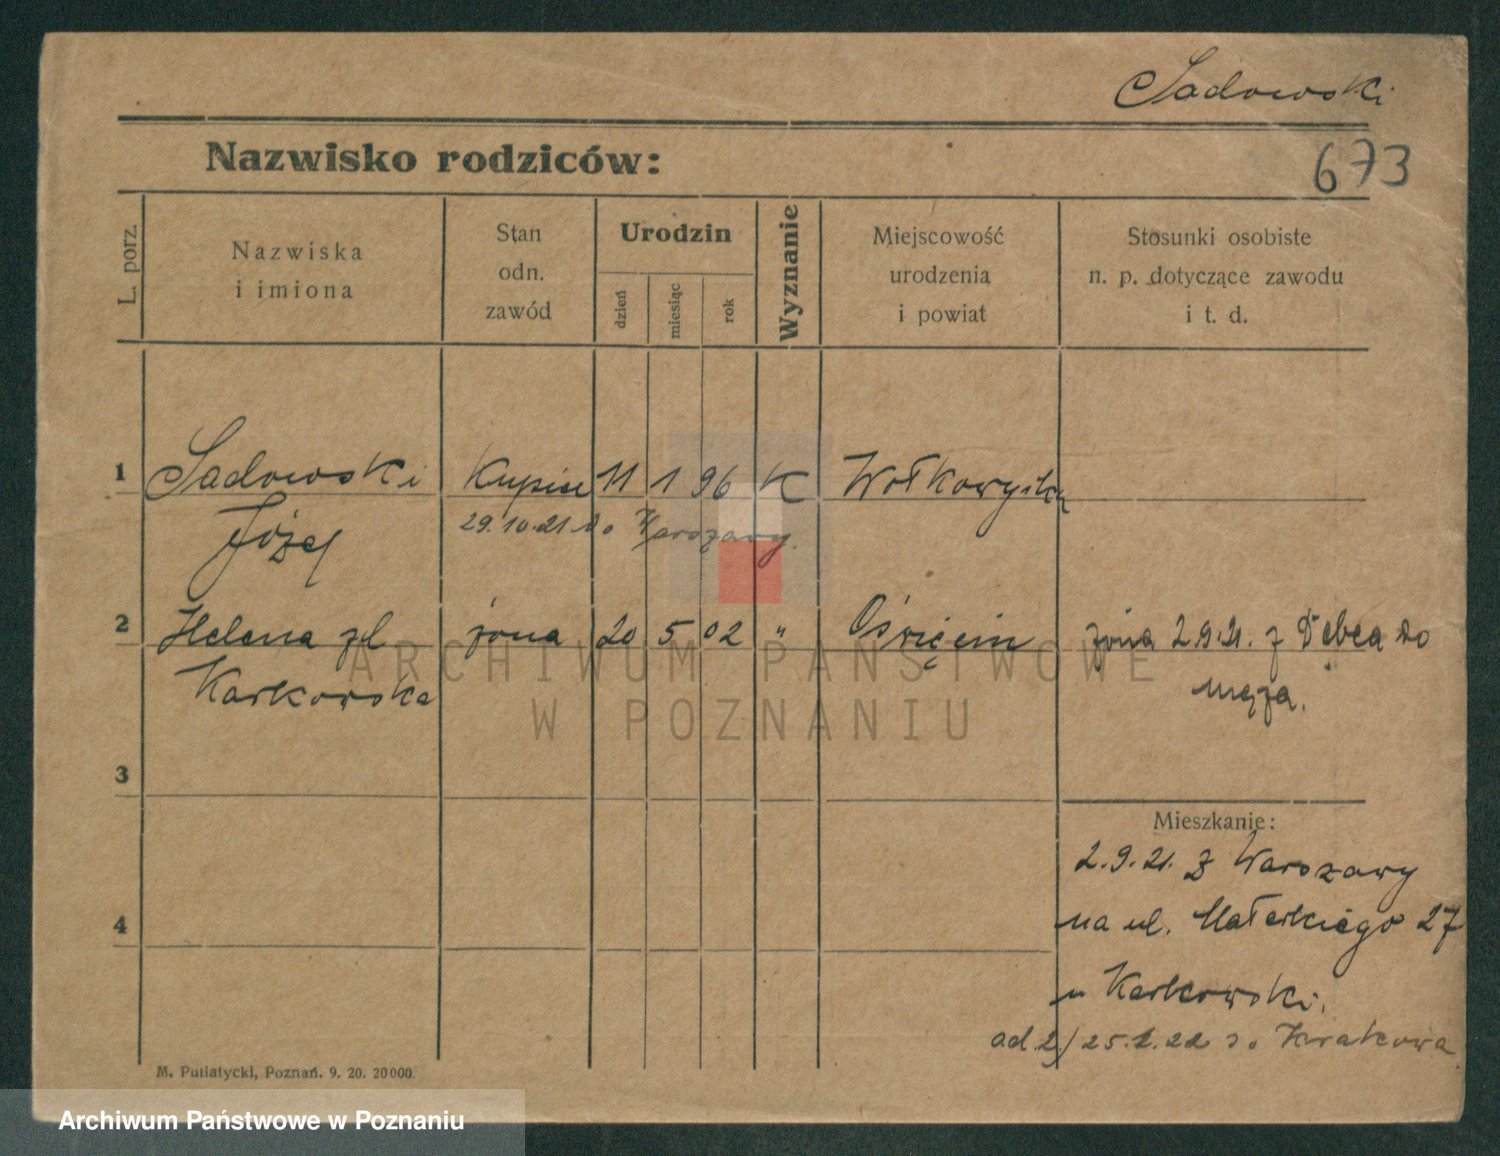 Sadowski
Nazwisko rodziców:
673
L. porz.
Nazwiska
i imiona
Stan
odn.
zawód
Urodzin
dzień
miesiąc
rok
Wyznanie
Miejscowość
urodzenia
i powiat
Stosunki osobiste
n. p. dotyczące zawodu
i t. d.
1 Sadowski Kupiec 11 1 96 K Wołkowyska
Józef 29.10.21 do Warszawy.
2 Helena zd żona 20 5 02 " Oświęcim żona 2.9.21. z Dębca do
Karkowska męża.
3
Mieszkanie:
2.9.21. z Warszawy
4 na ul. Małeckiego 27
u Karkowski.
ad 2/ 25.1.22 do Krakowa
M. Putiatycki, Poznań. 9. 20. 20000.
ARCHIWUM PAŃSTWOWE
W POZNANIU
Archiwum Państwowe w Poznaniu